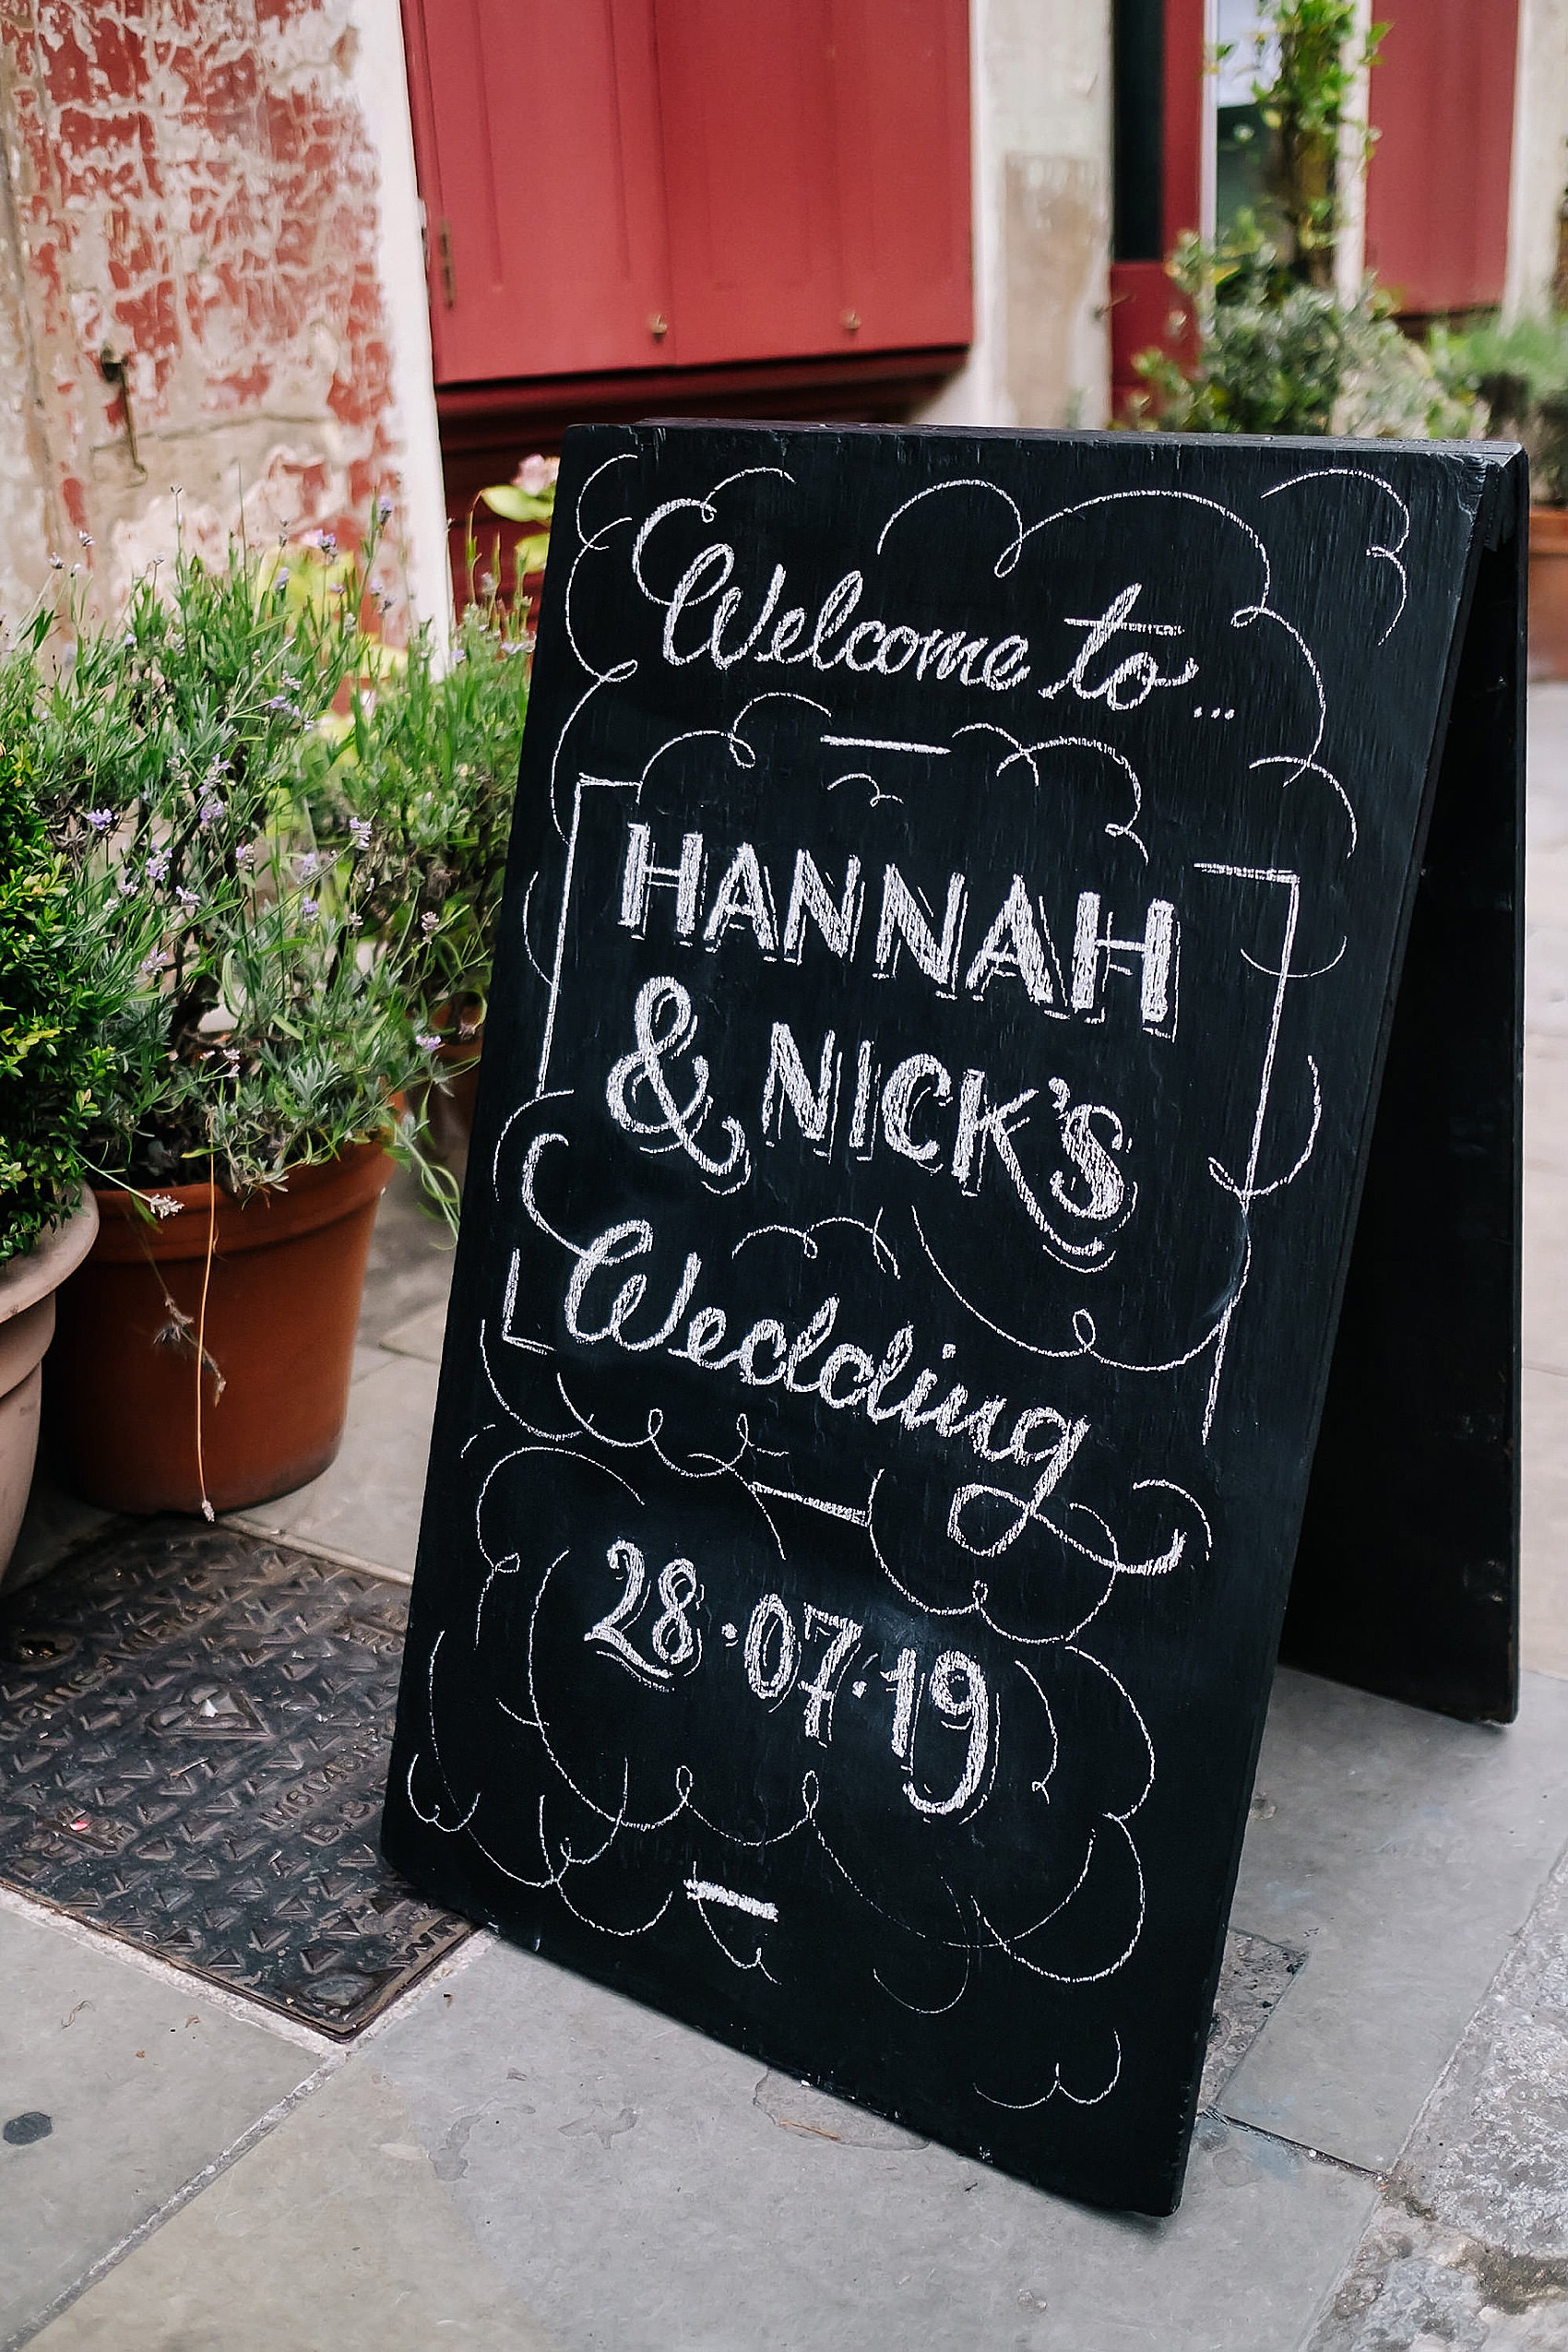 Welcome to...
HANNAH
& NICK'S
Wedding
28.07.19